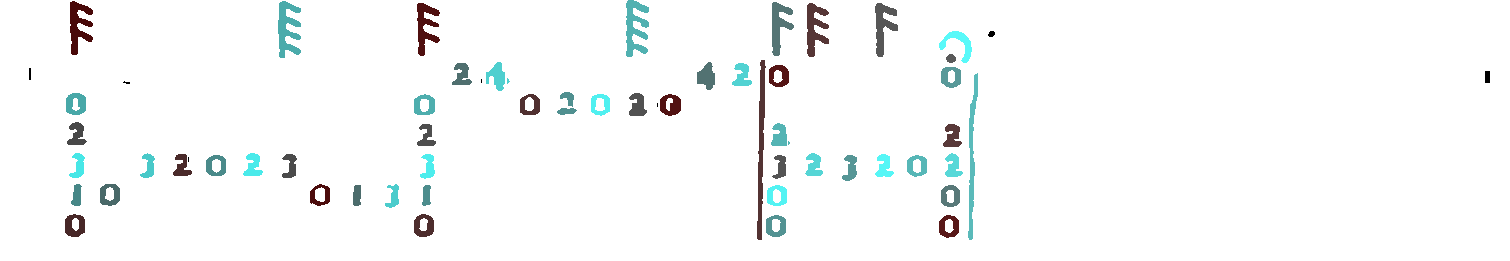 2 4 4 2 0 0
0 0 0 2 0 2 0
2 2 2 2
3 3 2 0 2 3 3 3 2 3 2 0 2
1 0 0 1 3 1 0 0
0 0 0 0